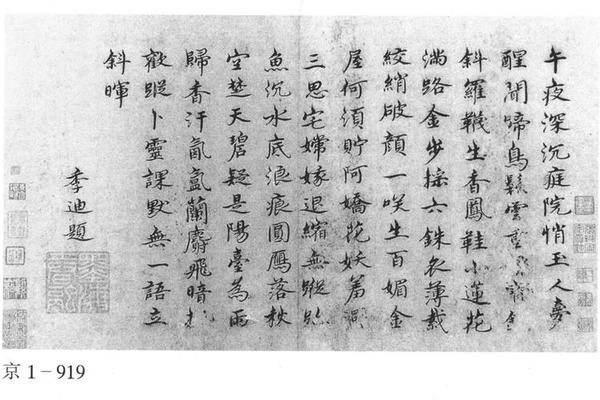 午夜深沉庭院悄玉人夢
醒聞啼鳥鬆雲重
斜羅韈生香鳳鞋小蓮花
滿路金步採六銖衣薄裁
絞綃破顏一咲生百媚金
屋何須貯阿嬌花妖羞
三思宅嫦娥退縮無蹤跡
魚沉水底浪痕圓鴈落秋
空楚天碧疑是陽臺為雨
歸香汗氤氳蘭麝飛暗
歡蹤卜靈課默無一語立
斜暉
李迪題
京1-919